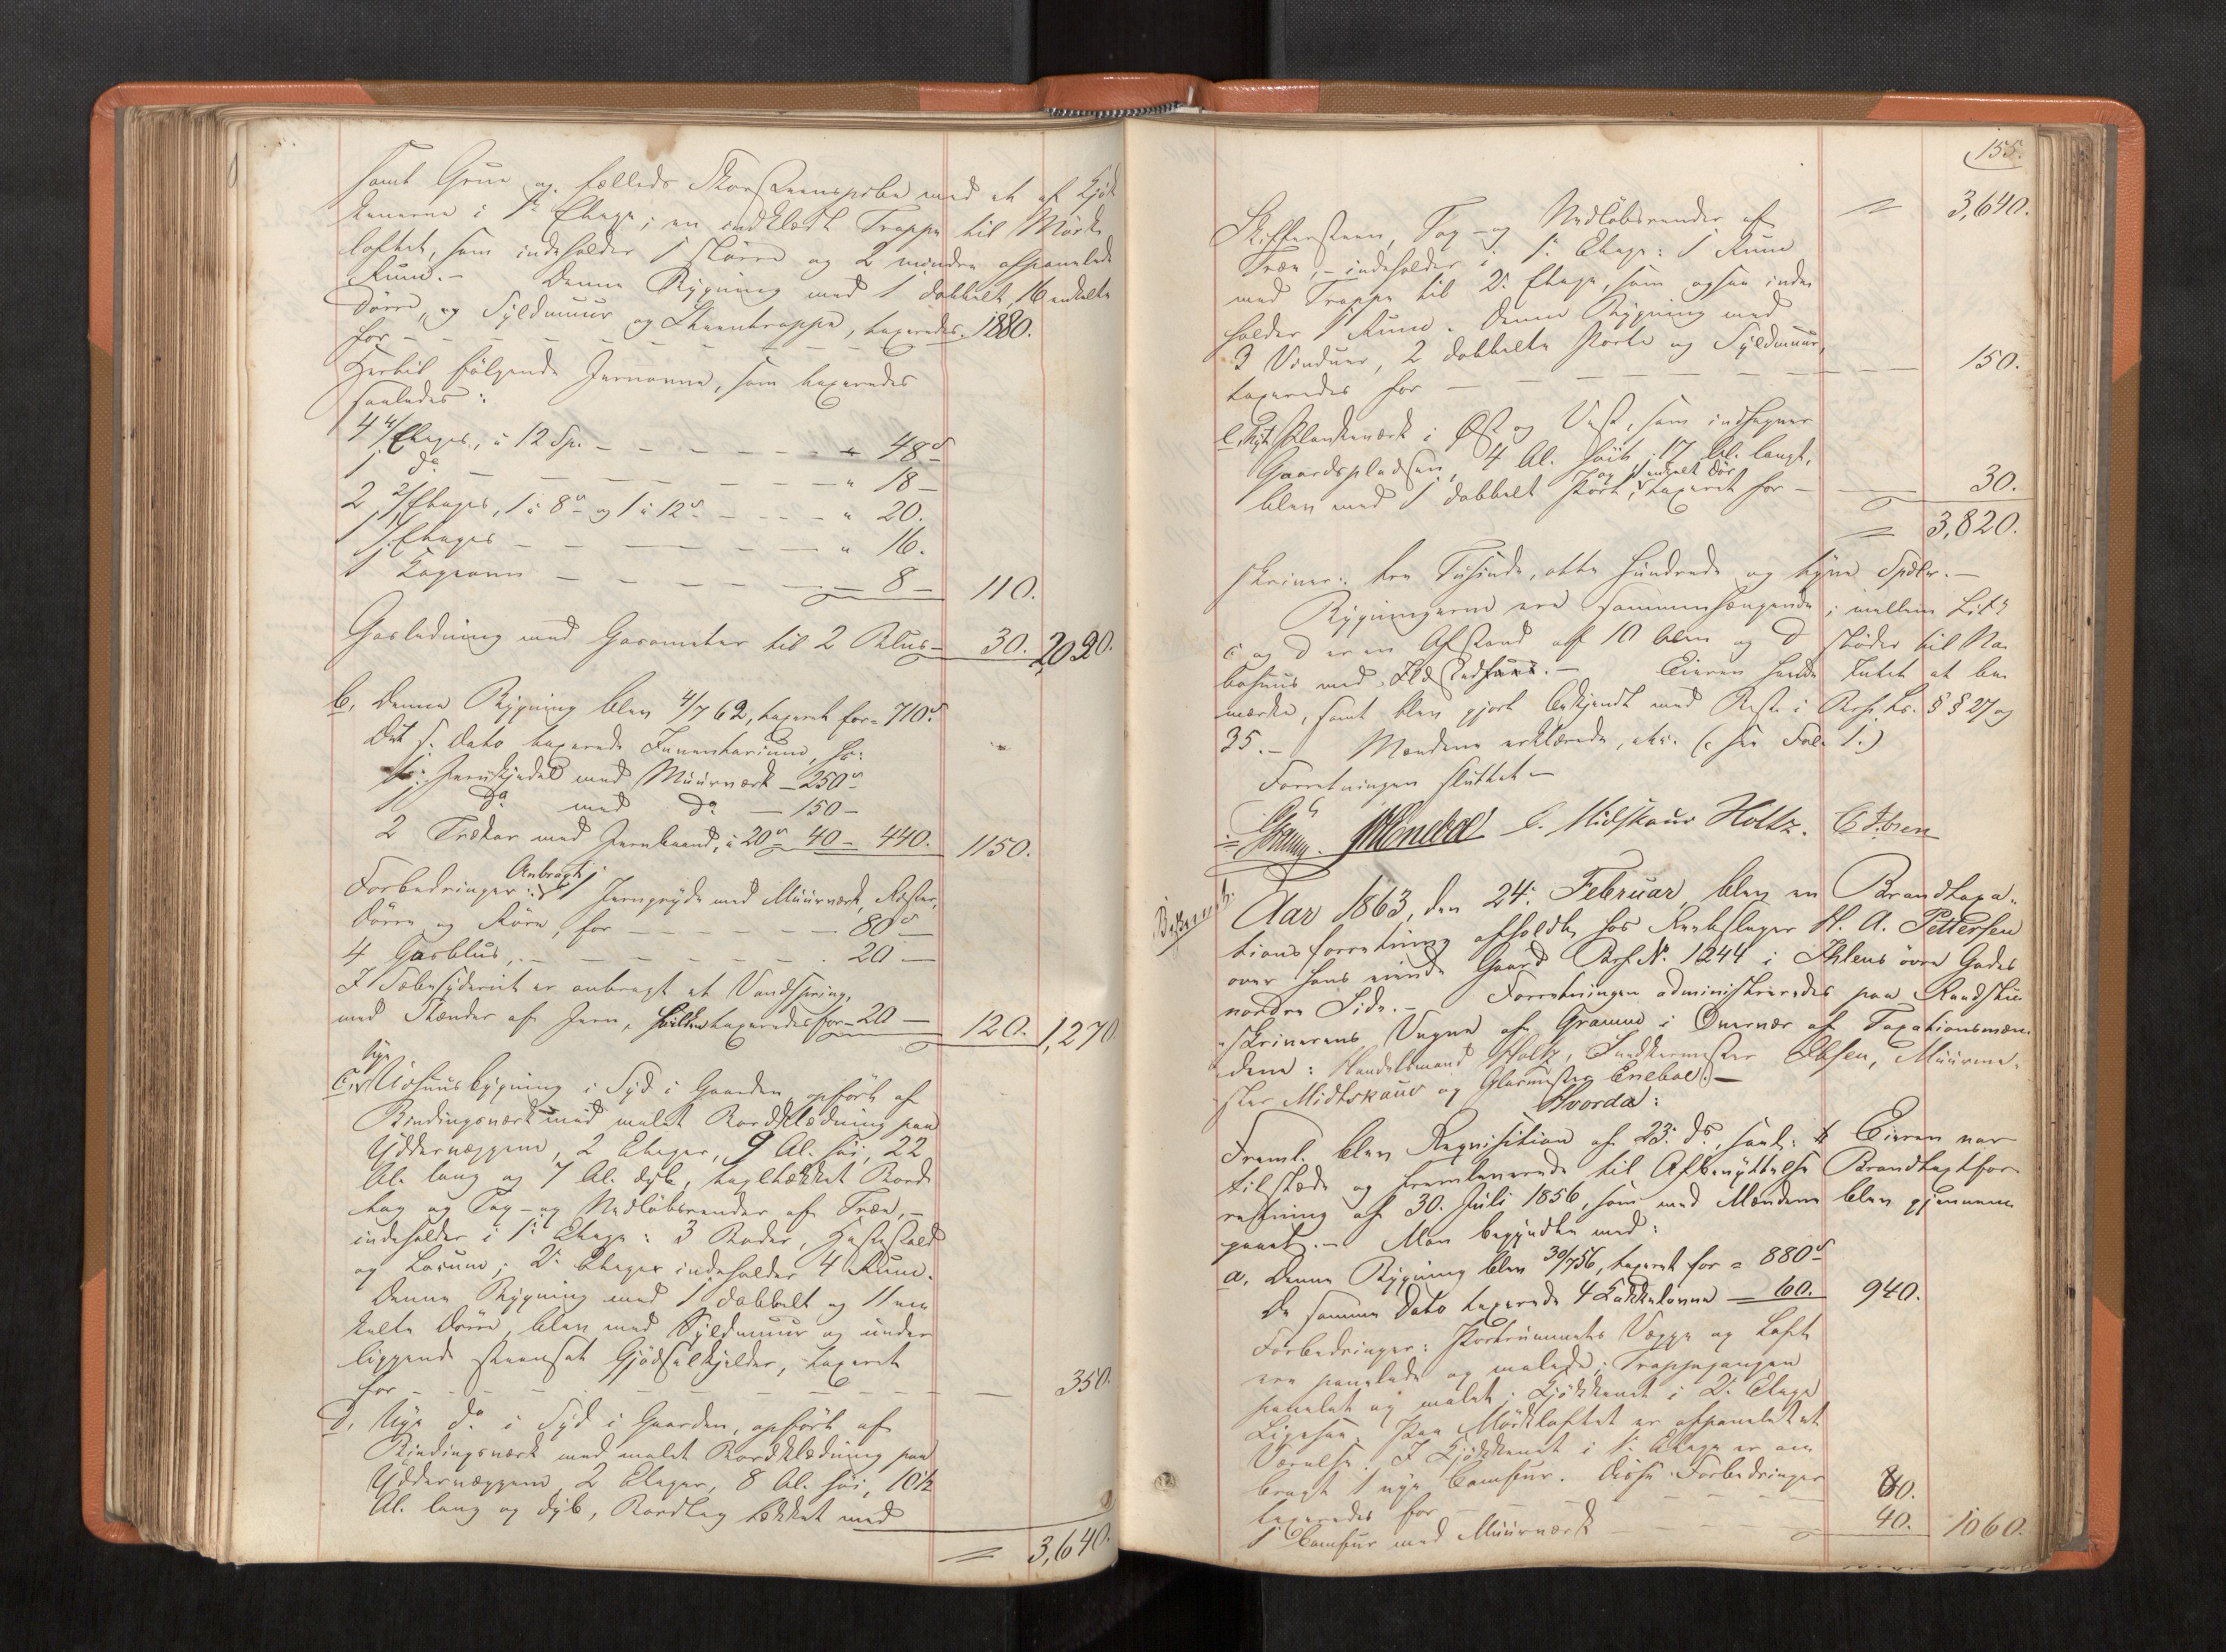 samt Grue og fælleds Skorsteenspibe med et af Kjøk
kenerne i 1ste Etage; en indklædt Trappe til Mørk-
loftet, som indeholder 1 større og 2 mindre afpanelede
Rum. — Denne Bygning med 1 dobbelt, 16 enkelte
Dørre, og Syldmuur og Steentrappe, taxeredes
for - - - - - - 1880.
Hertil følgende Jernovne, som taxeredes
saaledes:
4 4/Etages, à 12 Sp. - - - - " 48 s
1 do - - - - " 18 —
2 2/Etages, 1 à 8 s og 1 à 12 s - - - " 20.
1 1/Etages - - - - " 16.
1 Kogeovn - - - - 8 — 110.
Gasledning med Gasometer til 2 Blus — 30. 2020.
b, Denne Bygning blev 4/7 62, taxeret for = 710 s
Det s. Dato taxerede Inventarium, so:
1 Jernkjedel med Muurværk — 250 s
1 do med do — 150 —
2 Trækar med Jernbaand, à 20 s 40 — 440. 1150.
Forbedringer: Anbragt 1 Jerngryde med Muurværk, Rister,
Dørre og Rør, for - - - 80 s
4 Gasblus, - - - - 20 —
I Sæbesyderiet er anbragt et Vandspring,
med Stænder af Jern, hvilket taxeredes for — 20 — 120. 1,270
c, nye Udhuusbygning i Syd i Gaarden, opført af
Bindingsværk med malet Bordklædning paa
Yddervæggene, 2 Etager, 9 Al. høi, 22
Al. lang og 7 Al. dyb, tagltækket Bord-
tag og Tag- og Nedløbsrender af Træ, —
indeholder i 1ste Etage: 3 Boder, Hestestald
og Locum; 2den Etage indeholder 4 Rum.
Denne Bygning med 1 dobbelt og 11 en
kelte Dørre, blev med Syldmuur og under
liggende steensat Gjødselkjelder, taxeret
for - - - - - - 350.
d, Nye do i Syd i Gaarden, opført af
Bindingsværk med malet Bordklædning paa
Yddervæggene, 2 Etager, 8 Al. høi, 10½
Al. lang og dyb, Bordtag tækket med
= 3,640.
155.
= 3,640.
Skiffersteen, Tag- og Nedløbsrender af
Træ, — indeholder i 1ste Etage: 1 Rum
med Trappe til 2den Etage, som ogsaa inde
holder 1 Rum. Denne Bygning med
3 Vinduer, 2 dobbelte Porte og Syldmuur,
taxeredes for — — — — 150.
e, Nyt Plankeværk i Øst og Vest, som indhegner
Gaardspladsen, 4 Al. høit, 17 Al. langt,
blev med 1 dobbelt Port, og 1 enkelt Dør taxeret for — — 30.
= 3,820.
skriver: tre Tusinde, otte Hundrede og tyve Spdlr. —
Bygningerne ere sammenhængende; mellem Litr
c og d er en Afstand af 10 Alen og d støder til Na-
bohuus med Ildsted. — Eieren havde Intet at be
mærke, samt blev gjort bekjendt med Reste i Brf. Lov. §§ 27 og
35. — Mændene erklærede, etc. (: see Fol. 1.)
Forretningen sluttet —
Gramm. Eneboe C. Midtskauv Holtz. C Ibsen
Aar 1863, den 24. Februar, blev en Brandtaxa-
tionsforretning afholdt hos Rebslager H. A. Pettersen
over hans eiende Gaard Brf. No. 1244 i Ihlens øvre Gades
nordre Side. — Forretningen administreredes paa Raadstu-
skriverens Vegne af Gramm i Overvær af Taxationsmæn-
dene: Handelsmand Holtz, Snedkermester Ibsen, Muurme-
ster Midtskauv og Glarmester Eneboe. —
Hvorda:
Freml. blev Requisition af 23. ds., samt: Eieren var
tilstæde og fremleverede til Afbenyttelse Brandtaxtfor
retning af 30. Juli 1856, som med Mændene blev gjennem
gaaet. — Man begyndte med:
a, Denne Bygning blev 30/7 56, taxeret for = 880 s
De samme Dato taxerede 4 Kakkelovne — 60. 940.
Forbedringer: Portrummets Vægge og Loft
ere panelede og malede; Trappegangen
panelet og malet; Kjøkkenet i 2den Etage
Ligesaa. Paa Mørkloftet er afpanelet et
Værelse. I Kjøkkenet i 1ste Etage er an
bragt 1 nye Comfur. Disse Forbedringer
taxeredes for - - - - 80.
1 Comfur med Muurværk - - - - 40. 1060.